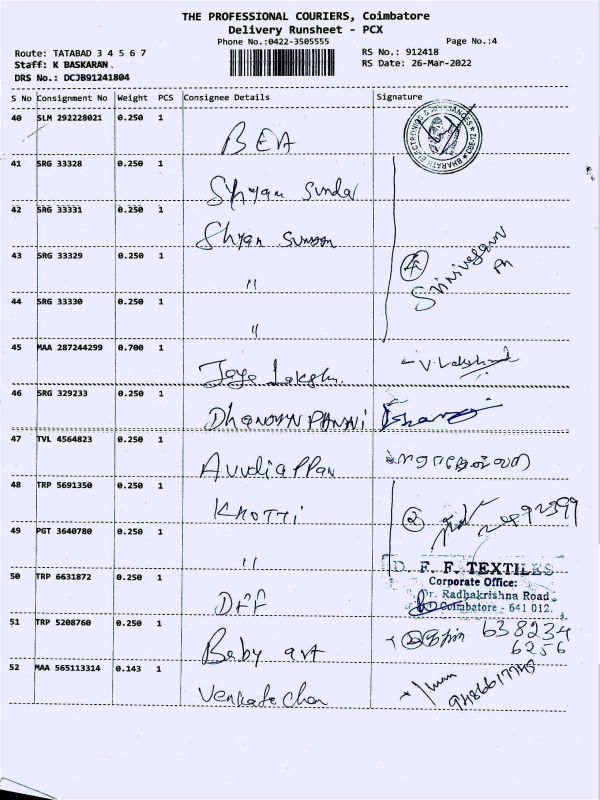 THE PROFESSIONAL COURIERS, Coimbatore
Delivery Runsheet - PCX
Phone No.:0422-3505555
Page No.:4
Route: TATABAD 3 4 5 6 7
RS No.: 912418
Staff: K BASKARAN .
RS Date: 26-Mar-2022
DRS No.: DCJB91241804
S No Consignment No Weight PCS Consignee Details Signature
40 SLM 292228021 0.250 1
BEA
BHARATH ELECTRONICS & APPLIANCES ★ CBE-12 ★
41 SRG 33328 0.250 1
Shyam Sundar
42 SRG 33331 0.250 1
Shyam
43 SRG 33329 0.250 1
"
4
Srinivasan
44 SRG 33330 0.250 1
"
45 MAA 287244299 0.700 1
Jaya
V. Lakshmi
46 SRG 329233 0.250 1
47 TVL 4564823 0.250 1
Avudiappan
48 TRP 5691350 0.250 1
KHOTTI
2
49 PGT 3640780 0.250 1
"
D. F. F. TEXTILES
Corporate Office:
Dr. Radhakrishna Road
Coimbatore - 641 012.
50 TRP 6631872 0.250 1
DFF
51 TRP 5208760 0.250 1
Baby art
638234
6256
52 MAA 565113314 0.143 1